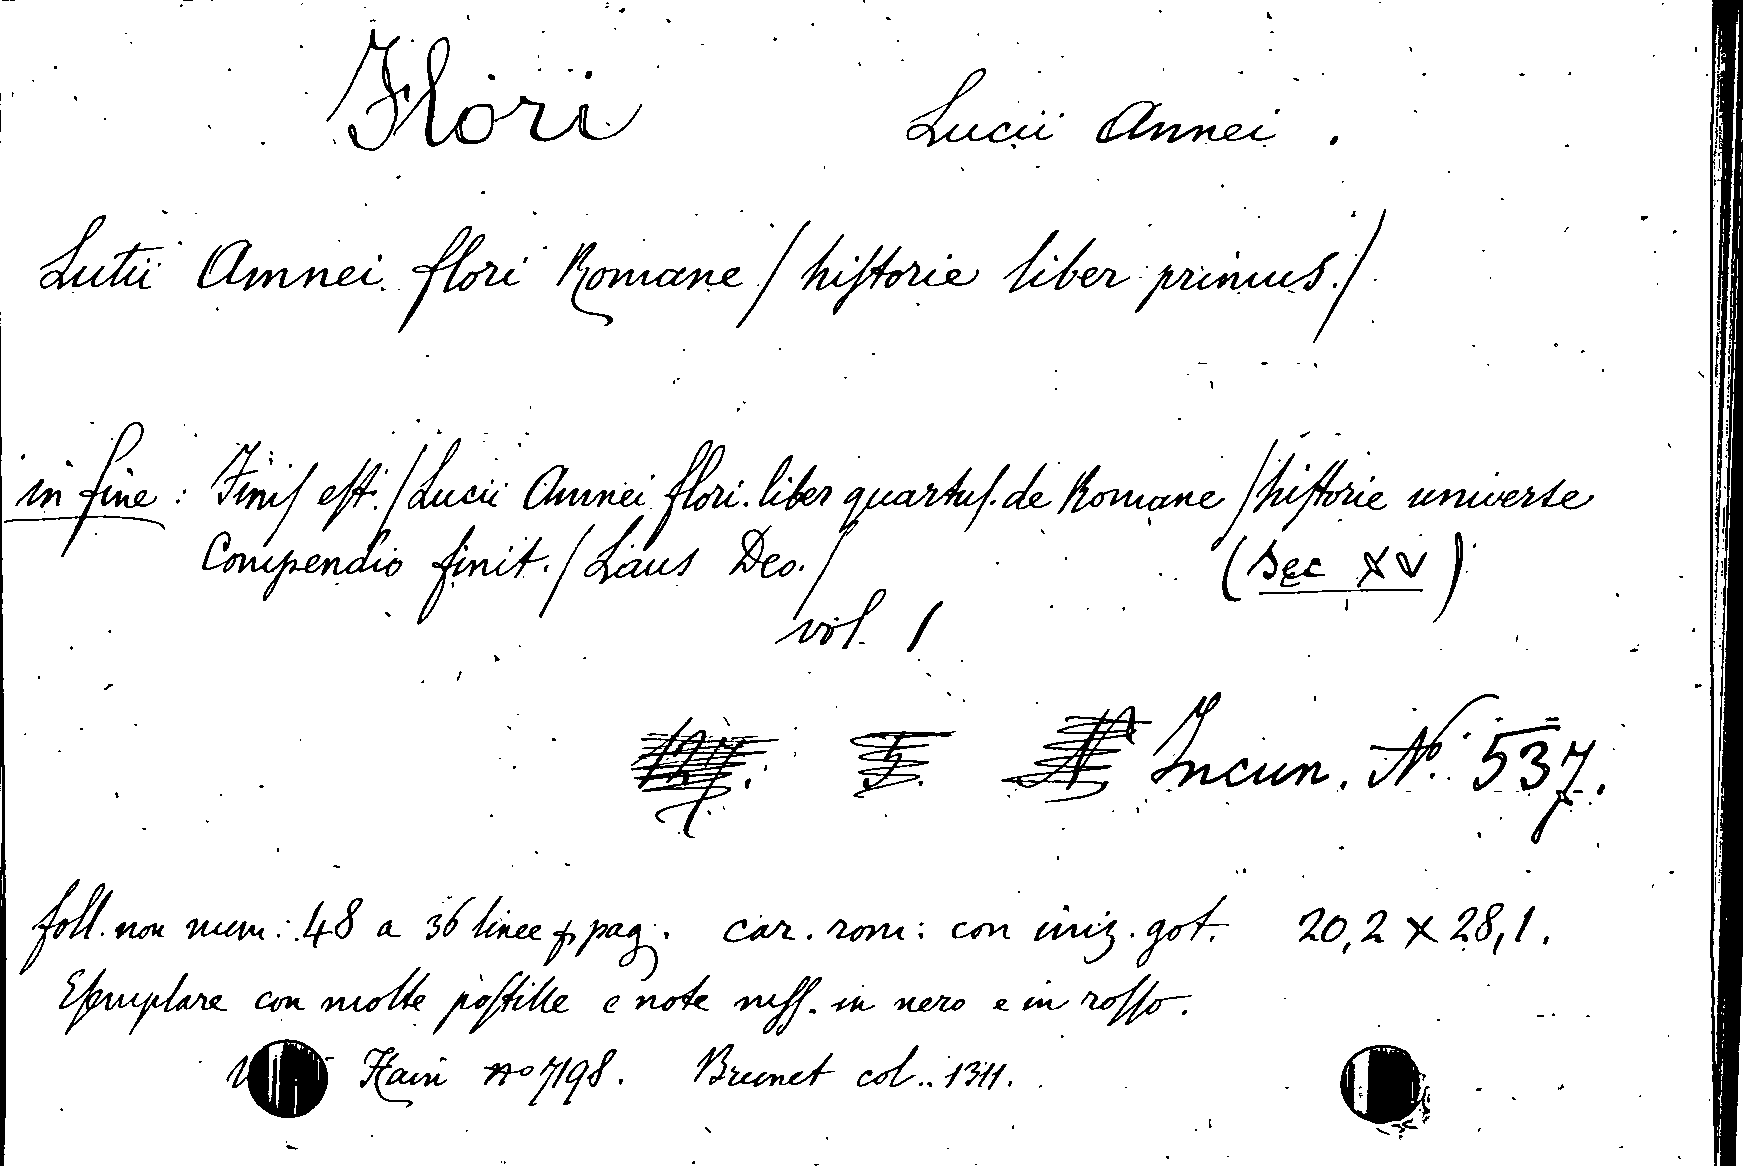 Flori Lucii Annei.
Lutii Amnei flori Romane / hiſtorie liber primus./
in fine: Finiſ eſt./Lucii Amnei flori. liber quartuſ. de Romane / hiſtorie universe
Compendio finit./Laus Deo./ (Sec XV)
vol. 1
Incun. Nº. 537.
foll. non num: 48 a 36 linee p pag. car. rom: con iniz. got. 20,2 x 28,1.
Eſemplare con molte poſtille e note mſſ. in nero e in roſſo.
Hain nº 7198. Brunet col.. 1311.